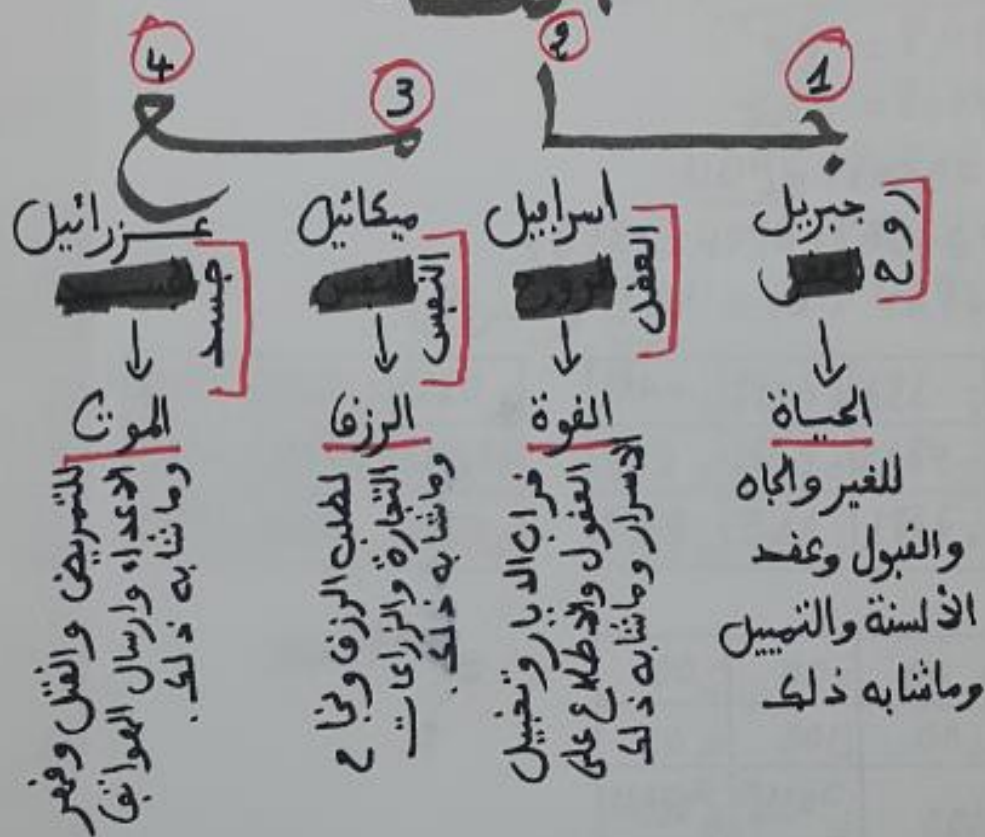 1
2
3
4
جا
مع
جبريل
روح
الحياة
للغير والجاه
والقبول وعقد
الألسنة والتمييل
وماشابه ذلك
اسرافيل
العقل
القوة
خراب الديار وتخبيل
العقول والاطلاع على
الاسرار وماشابه ذلك
ميكائيل
النفس
الرزق
لطلب الرزق ونجاح
التجارة والزراعات
وماشابه ذلك.
عزرائيل
جسد
الموت
للتمريض والقتل وقهر
الاعداء وارسال الهواتف
وماشابه ذلك.